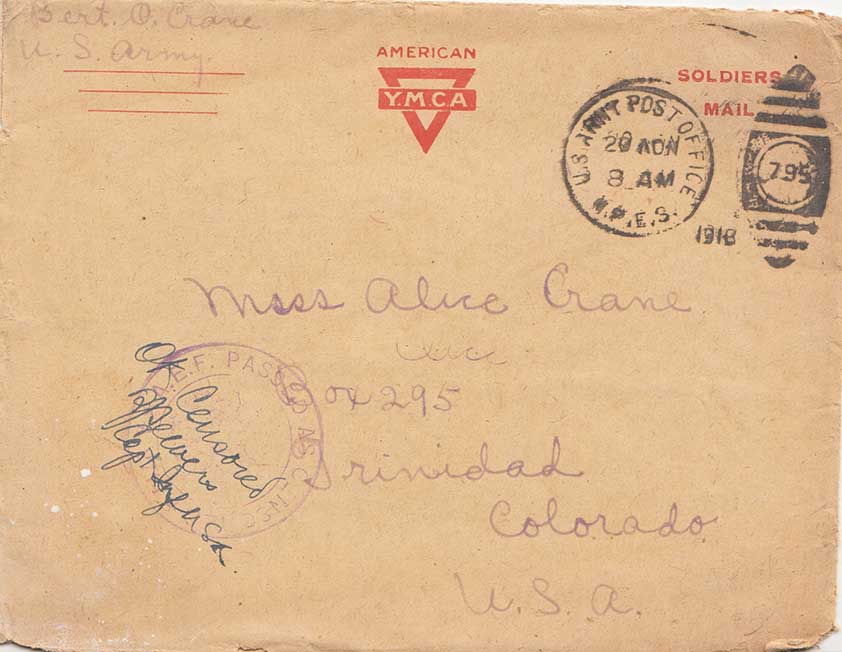 Bert. O. Crane
U. S. Army.
AMERICAN
Y.M.C.A
SOLDIERS
MAIL
U.S. ARMY POST OFFICE
8 AM
M.P.E.S.
1918
795
Miss Alice Crane
Box 295
Trinidad
Colorado
U. S. A.
A.E.F. PASSED AS CENSORED
OK Censored
Capt Inf USA